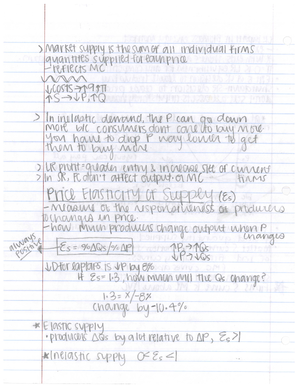 > Market supply is the sum of all individual firms
quantities supplied for each price
- reflects MC
↓costs → ↑q ↑π
↑S → ↓P, ↑Q
> In inelastic demand, the P can go down
more b/c consumers don't care to buy more
You have to drop P way lower to get
them to buy more
> LR profit = greater entry & increase size of current
> In SR, FC don't affect output or MC firms
Price Elasticity of Supply (Es)
- measure of the responsiveness of producers
to changes in price
- how much producers change output when P
changes
always
positive
Es = %ΔQs / %ΔP
↑P → ↑Qs
↓P → ↓Qs
↓D for is ↓P by 8%
If Es = 1.3, how much will the Qs change?
1.3 = x/-8%
change by -10.4%
* Elastic supply
• producers ΔQs by a lot relative to ΔP, Es>1
* Inelastic supply 0<Es<1